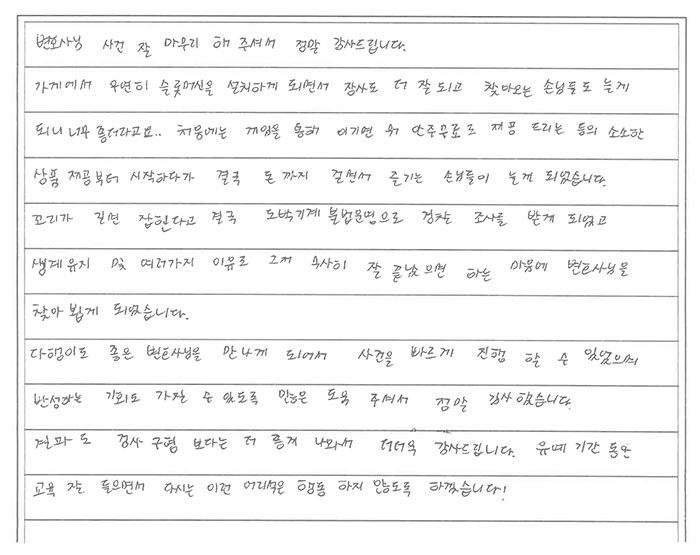 변호사님 사건 잘 마무리 해 주셔서 정말 감사드립니다.
가게에서 우연히 슬롯머신을 설치하게 되면서 장사도 더 잘되고 찾아오는 손님들도 늘게
되니 너무 좋더라고요.. 처음에는 게임을 통해 이기면 뭐 안주무료로 제공 드리는 등의 소소한
상품 제공부터 시작하다가 결국 돈 까지 걸면서 즐기는 손님들이 늘게 되었습니다.
꼬리가 길면 잡힌다고 결국 도박기계 불법운영으로 경찰 조사를 받게 되었고
생계유지 및 여러가지 이유로 그저 무사히 잘 끝났으면 하는 마음에 변호사님을
찾아 뵙게 되었습니다.
다행이도 좋은 변호사님을 만나게 되어서 사건을 바르게 진행 할 수 있었으며
반성하는 기회도 가질 수 있도록 많은 도움 주셔서 정말 감사했습니다.
결과 도 검사 구형 보다는 더 좋게 나와서 더더욱 감사드립니다. 유예 기간 동안
교육 잘 들으면서 다시는 이런 어리석은 행동 하지 않도록 하겠습니다!